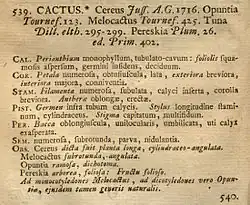 539. CACTUS.* Cereus Juss. A.G. 1716. Opuntia
Tournef. 123. Melocactus Tournef. 425. Tuna
Dill. elth. 295-299. Pereskia Plum. 26.
ed. Prim. 402.
CAL. Perianthium monophyllum, tubulato-cavum: foliolis squa-
mosis aspersum, germini insidens, deciduum.
COR. Petala numerosa, obtusiuscula, lata, exteriora breviora,
interiora majora, conniventia.
STAM. Filamenta numerosa, subulata, calyci inserta, corolla
breviora. Antheræ oblongæ, erectæ.
PIST. Germen infra tubum calycis. Stylus longitudine stami-
num, cylindraceus. Stigma capitatum, multifidum.
PER. Bacca oblongiuscula, unilocularis, umbilicata, uti calyx
exasperata.
SEM. numerosa, subrotunda, parva, nidulantia.
OBS. Cerei dicta sunt planta longa, cylindraceo-angulata.
Melocactus subrotunda, angulata.
Opuntia ramosa, dichotoma.
Pereskia arborea, foliosa: Fructu folioso.
Ad monocotyledones Melocactus, ad dicotyledones vero Opun-
tia, ejusdem tamen generis naturalis.
540.